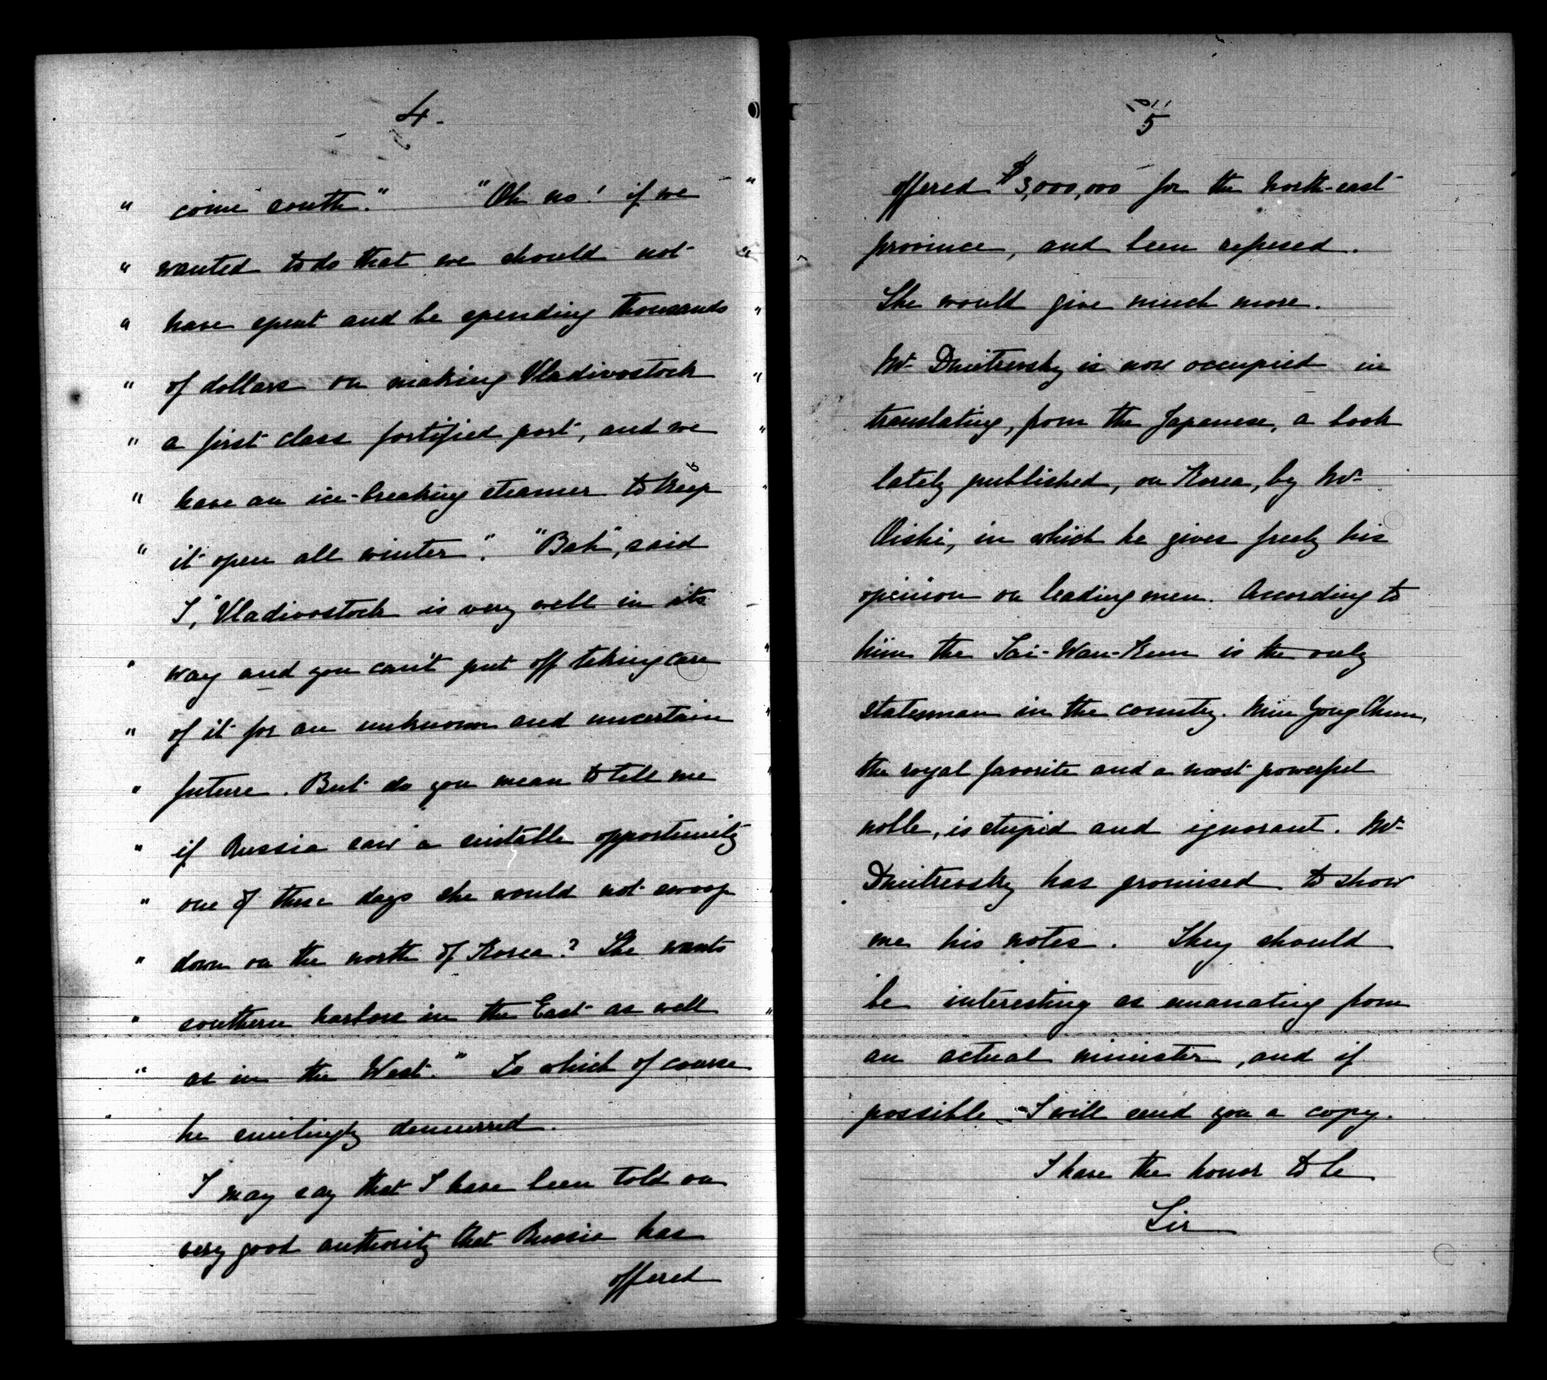 4.
" come south." "Oh no! if we "
" wanted to do that we should not "
" have spent and be spending thousands "
" of dollars on making Vladivostock "
" a first class fortified port, and we "
" have an ice-breaking steamer to keep "
" it open all winter". "Bah", said
I, "Vladivostock is very well in its
" way and you can't put off taking care "
" of it for an unknown and uncertain "
" future. But do you mean to tell me
" if Russia saw a suitable opportunity
" one of these days she would not swoop
" down on the north of Korea? She wants
" southern harbors in the East as well "
" as in the West." To which of course
he smilingly demurred.
I may say that I have been told on
very good authority that Russia has
offered
5
offered $3,000,000 for the North-east
province, and been refused.
She would give much more.
Mr Dmitrevsky is now occupied in
translating, from the Japanese, a book
lately published, on Korea, by Mr
Oishi, in which he gives freely his
opinion on leading men. According to
him the Tai-Wan-Kun is the only
statesman in the country. Min Yong Chun,
the royal favorite and a most powerful
noble, is stupid and ignorant. Mr
Dmitrevsky has promised to show
me his notes. They should
be interesting as emanating from
an actual minister, and if
possible I will send you a copy.
I have the honor to be
Sir